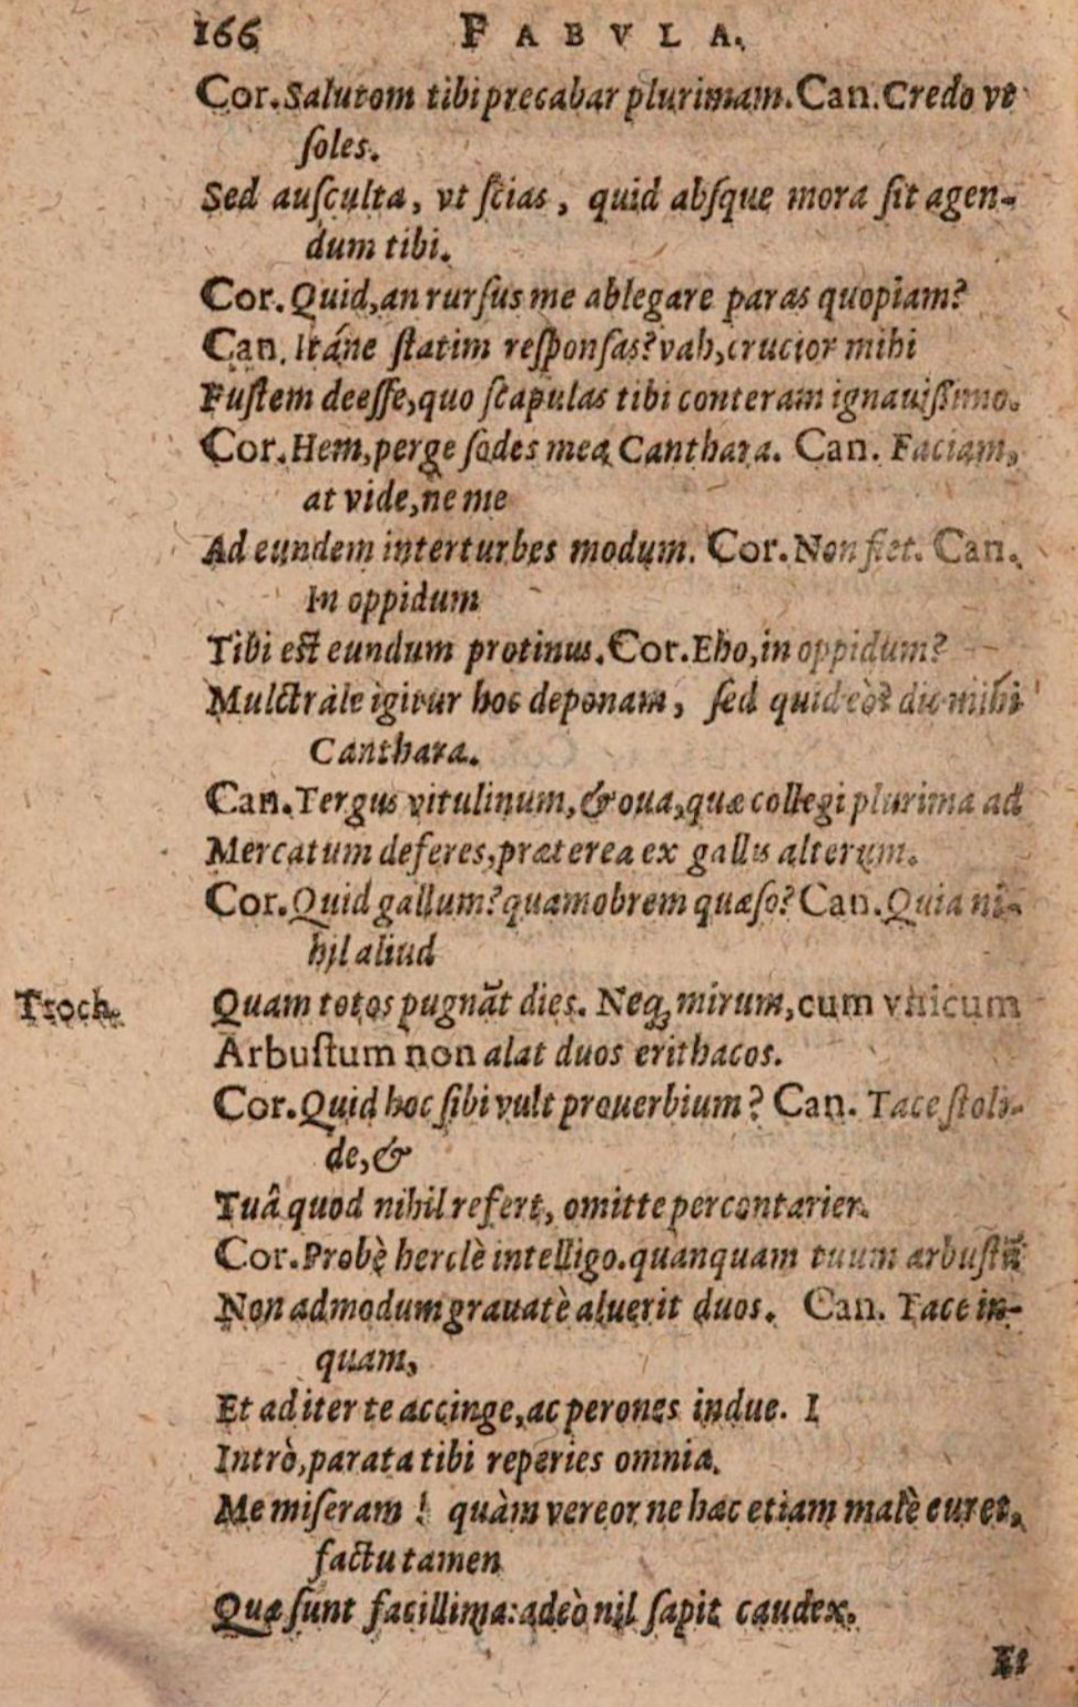 166 FABVLA.
Cor. Salutom tibi precabar plurimam. Can. Credo vt
ſoles.
Sed auſculta, vt ſcias, quid abſque mora ſit agen-
dum tibi.
Cor. Quid, an rurſus me ablegare paras quopiam?
Can. Itáne ſtatim reſponſas? vah, crucior mihi
Fuſtem deeſſe, quo ſcapulas tibi conteram ignauiſſimo.
Cor. Hem, perge ſodes mea Canthara. Can. Faciam,
at vide, ne me
Ad eundem interturbes modum. Cor. Non fiet. Can.
In oppidum
Tibi eſt eundum protinus. Cor. Eho, in oppidum?
Mulctrale igitur hoc deponam, ſed quid eò? dic mihi
Canthara.
Can. Tergus vitulinum, & oua, quæ collegi plurima ad
Mercatum deferes, præterea ex gallis alterum.
Cor. Quid gallum? quamobrem quæſo? Can. Quia ni-
hil aliud
Troch. Quam totos pugnãt dies. Neq; mirum, cum vnicum
Arbuſtum non alat duos erithacos.
Cor. Quid hoc ſibi vult prouerbium? Can. Tace ſtoli-
de, &
Tuâ quod nihil refert, omitte percontarier.
Cor. Probè herclè intelligo. quanquam tuum arbuſtũ
Non admodum grauatè aluerit duos. Can. Tace in-
quam,
Et ad iter te accinge, ac perones indue. I
Intrò, parata tibi reperies omnia.
Me miſeram! quàm vereor ne hac etiam malè curet,
factu tamen
Quæ ſunt facillima: adeò nil ſapit caudex.